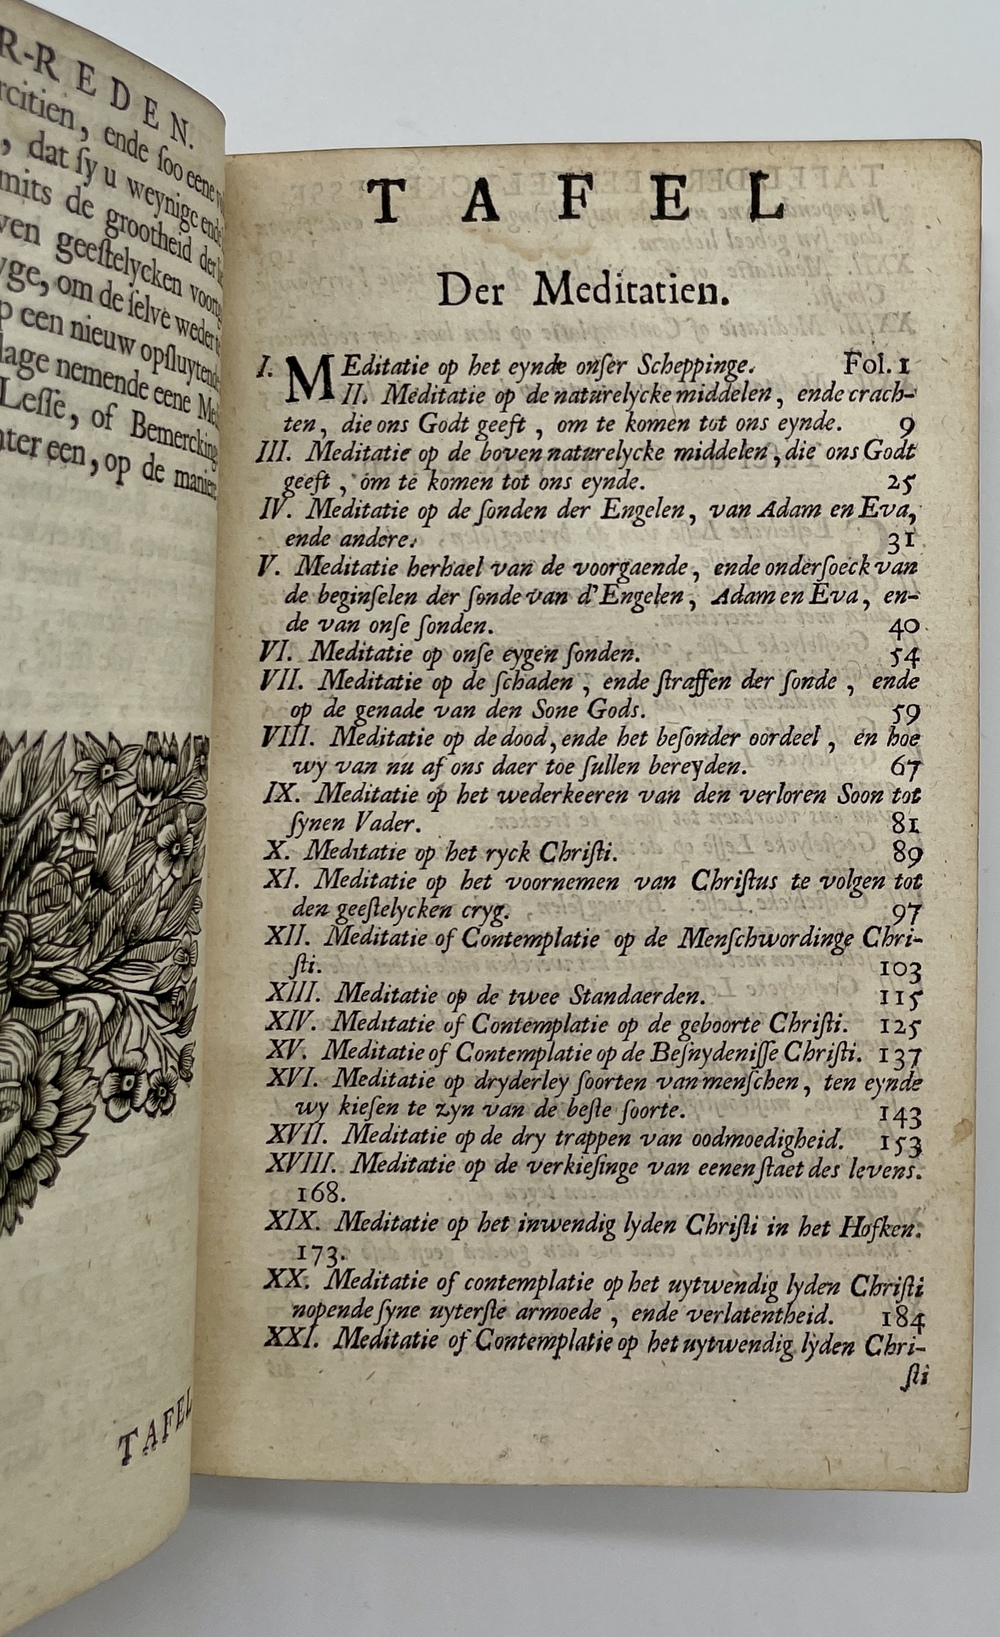 R-REDEN.
rcitien, ende ſoo eene
, dat ſy u weynige ende
mits de grootheid der
ven geeſtelycken
yge, om de ſelve weder
p een nieuw opſluytende
lage nemende eene Me
Leſſe, of Bemercking
nter een, op de maniere
TAFEL
TAFEL
Der Meditatien.
I. MEditatie op het eynde onſer Scheppinge. Fol. 1
II. Meditatie op de naturelycke middelen, ende crach-
ten, die ons Godt geeft, om te komen tot ons eynde. 9
III. Meditatie op de boven naturelycke middelen, die ons Godt
geeft, om te komen tot ons eynde. 25
IV. Meditatie op de ſonden der Engelen, van Adam en Eva,
ende andere. 31
V. Meditatie herhael van de voorgaende, ende onderſoeck van
de beginſelen der ſonde van d'Engelen, Adam en Eva, en-
de van onſe ſonden. 40
VI. Meditatie op onſe eygen ſonden. 54
VII. Meditatie op de ſchaden, ende ſtraffen der ſonde, ende
op de genade van den Sone Gods. 59
VIII. Meditatie op de dood, ende het beſonder oordeel, en hoe
wy van nu af ons daer toe ſullen bereyden. 67
IX. Meditatie op het wederkeeren van den verloren Soon tot
ſynen Vader. 81
X. Meditatie op het ryck Chriſti. 89
XI. Meditatie op het voornemen van Chriſtus te volgen tot
den geeſtelycken cryg. 97
XII. Meditatie of Contemplatie op de Menſchwordinge Chri-
ſti. 103
XIII. Meditatie op de twee Standaerden. 115
XIV. Meditatie of Contemplatie op de geboorte Chriſti. 125
XV. Meditatie of Contemplatie op de Beſnydeniſſe Chriſti. 137
XVI. Meditatie op dryderley ſoorten van menſchen, ten eynde
wy kieſen te zyn van de beſte ſoorte. 143
XVII. Meditatie op de dry trappen van oodmoedigheid. 153
XVIII. Meditatie op de verkieſinge van eenen ſtaet des levens.
168.
XIX. Meditatie op het inwendig lyden Chriſti in het Hofken.
173.
XX. Meditatie of contemplatie op het uytwendig lyden Chriſti
nopende ſyne uyterſte armoede, ende verlatentheid. 184
XXI. Meditatie of Contemplatie op het uytwendig lyden Chri-
ſti